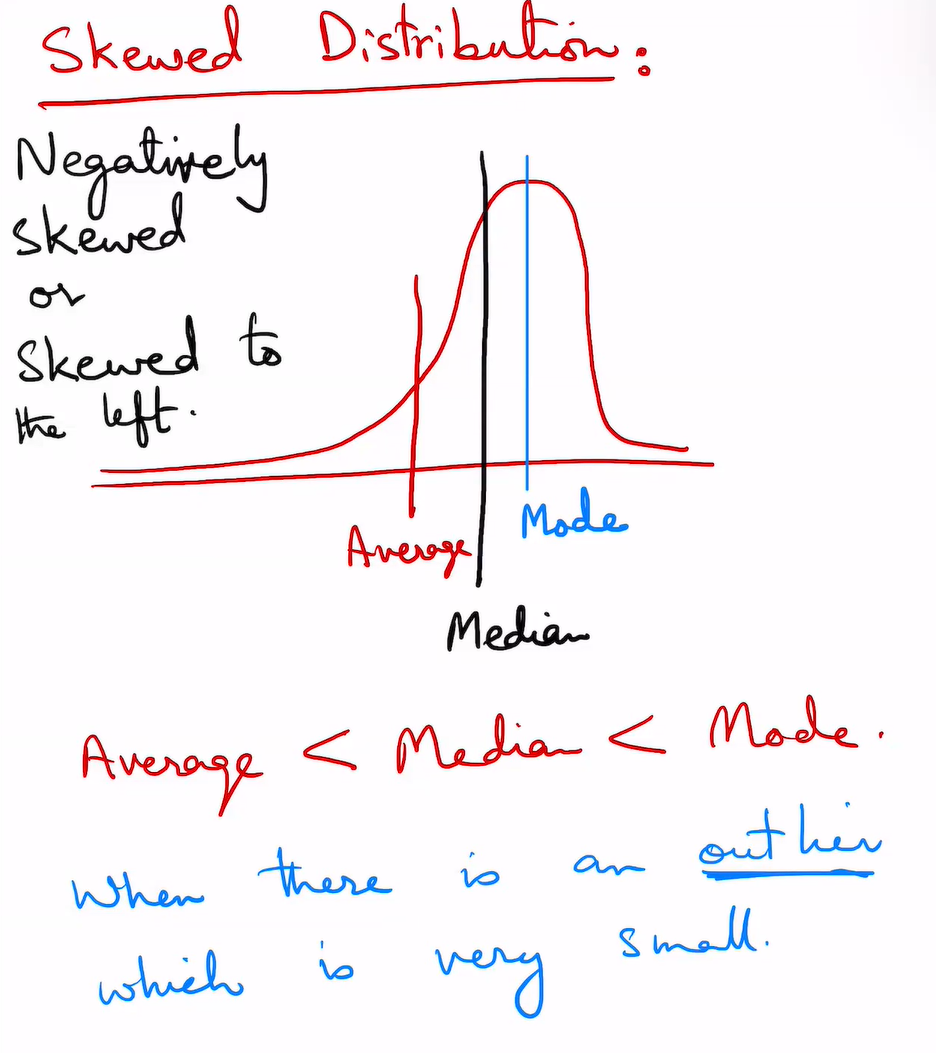 Skewed Distribution:
Negatively
skewed
or
Skewed to
the left.
Mode
Average
Median
Average < Median < Mode.
When there is an outlier
which is very small.